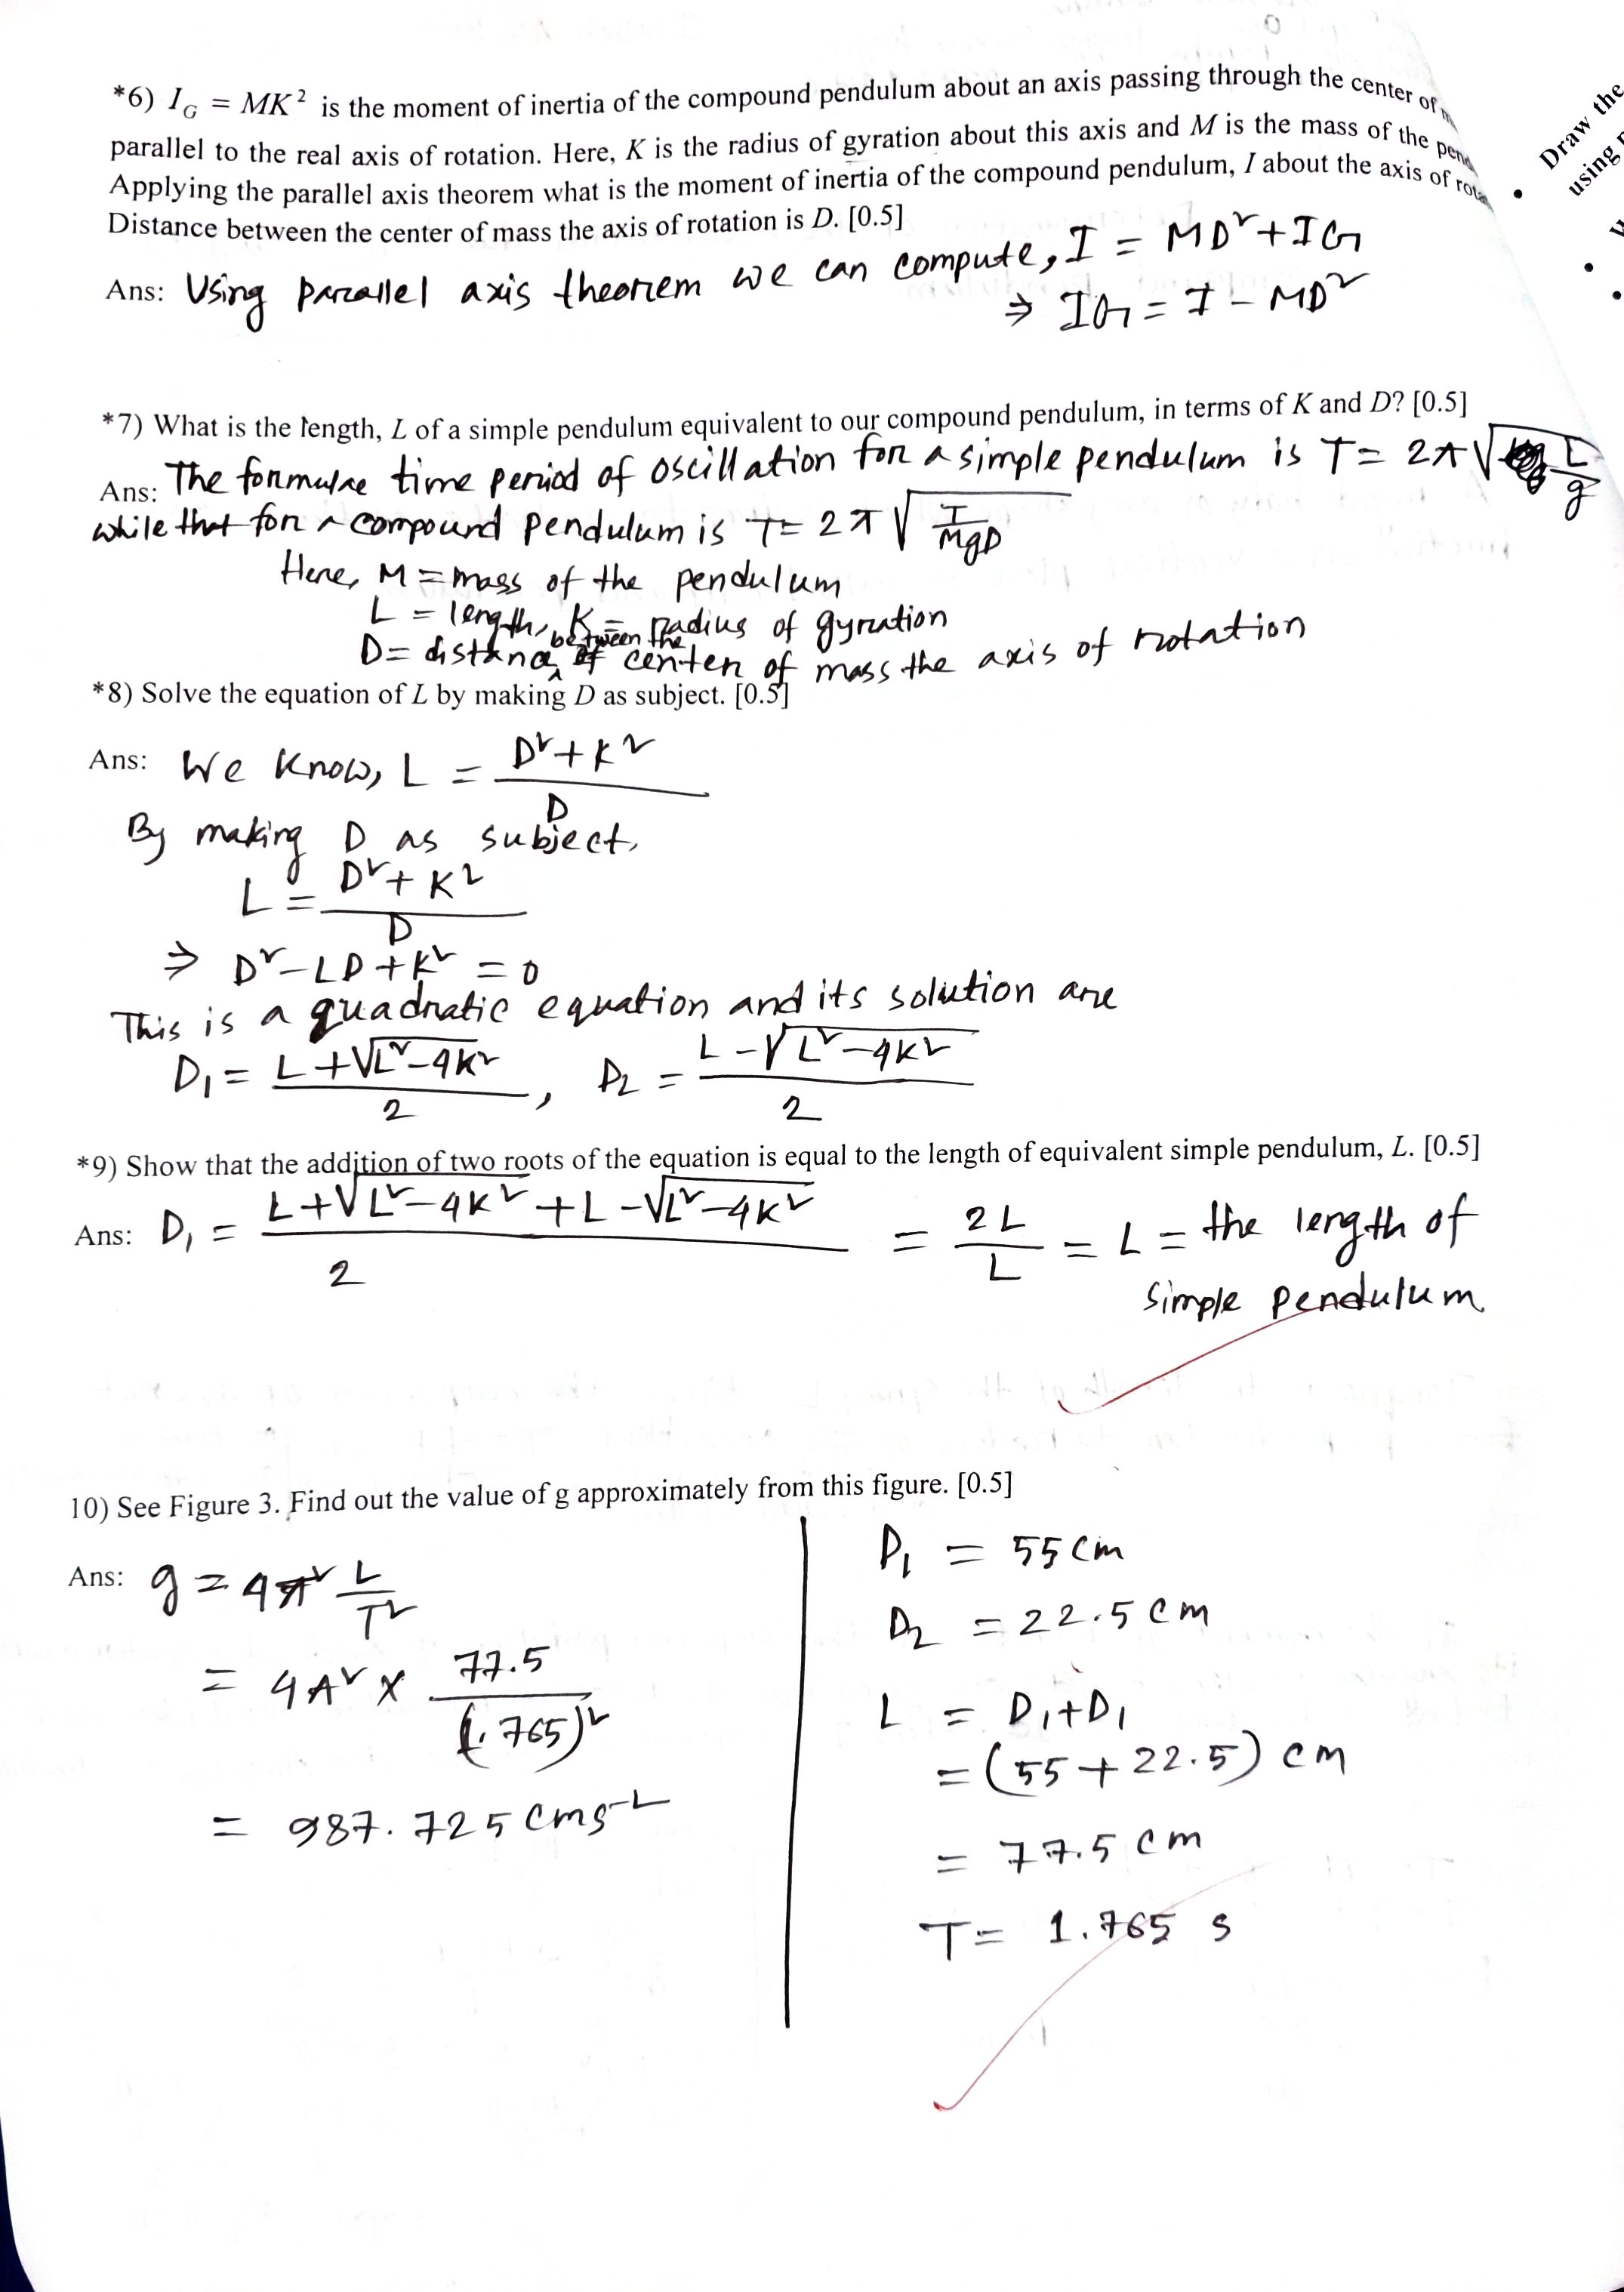 *6) I_G = MK² is the moment of inertia of the compound pendulum about an axis passing through the center of
parallel to the real axis of rotation. Here, K is the radius of gyration about this axis and M is the mass of the
Applying the parallel axis theorem what is the moment of inertia of the compound pendulum, I about the axis of
Distance between the center of mass the axis of rotation is D. [0.5]
Ans: Using parallel axis theorem we can compute, I = MD² + IG
⇒ IG = I – MD²
*7) What is the length, L of a simple pendulum equivalent to our compound pendulum, in terms of K and D? [0.5]
Ans: The formulae time period of oscillation for a simple pendulum is T = 2π√(L/g)
while that for a compound pendulum is T = 2π√(I/MgD)
Here, M = mass of the pendulum
L = length, K = radius of gyration
D = distance between the center of mass the axis of rotation
*8) Solve the equation of L by making D as subject. [0.5]
Ans: We know, L = (D² + K²)/D
By making D as subject,
L = (D² + K²)/D
⇒ D² – LD + K² = 0
This is a quadratic equation and its solution are
D₁ = (L + √(L² – 4K²))/2, D₂ = (L – √(L² – 4K²))/2
*9) Show that the addition of two roots of the equation is equal to the length of equivalent simple pendulum, L. [0.5]
Ans: D₁ = (L + √(L² – 4K²) + L – √(L² – 4K²))/2 = 2L/L = L = the length of
simple pendulum
10) See Figure 3. Find out the value of g approximately from this figure. [0.5]
Ans: g = 4π² L/T²
= 4π² × 77.5/(1.765)²
= 987.725 cms⁻²
D₁ = 55 cm
D₂ = 22.5 cm
L = D₁ + D₁
= (55 + 22.5) cm
= 77.5 cm
T = 1.765 s
Draw the
using